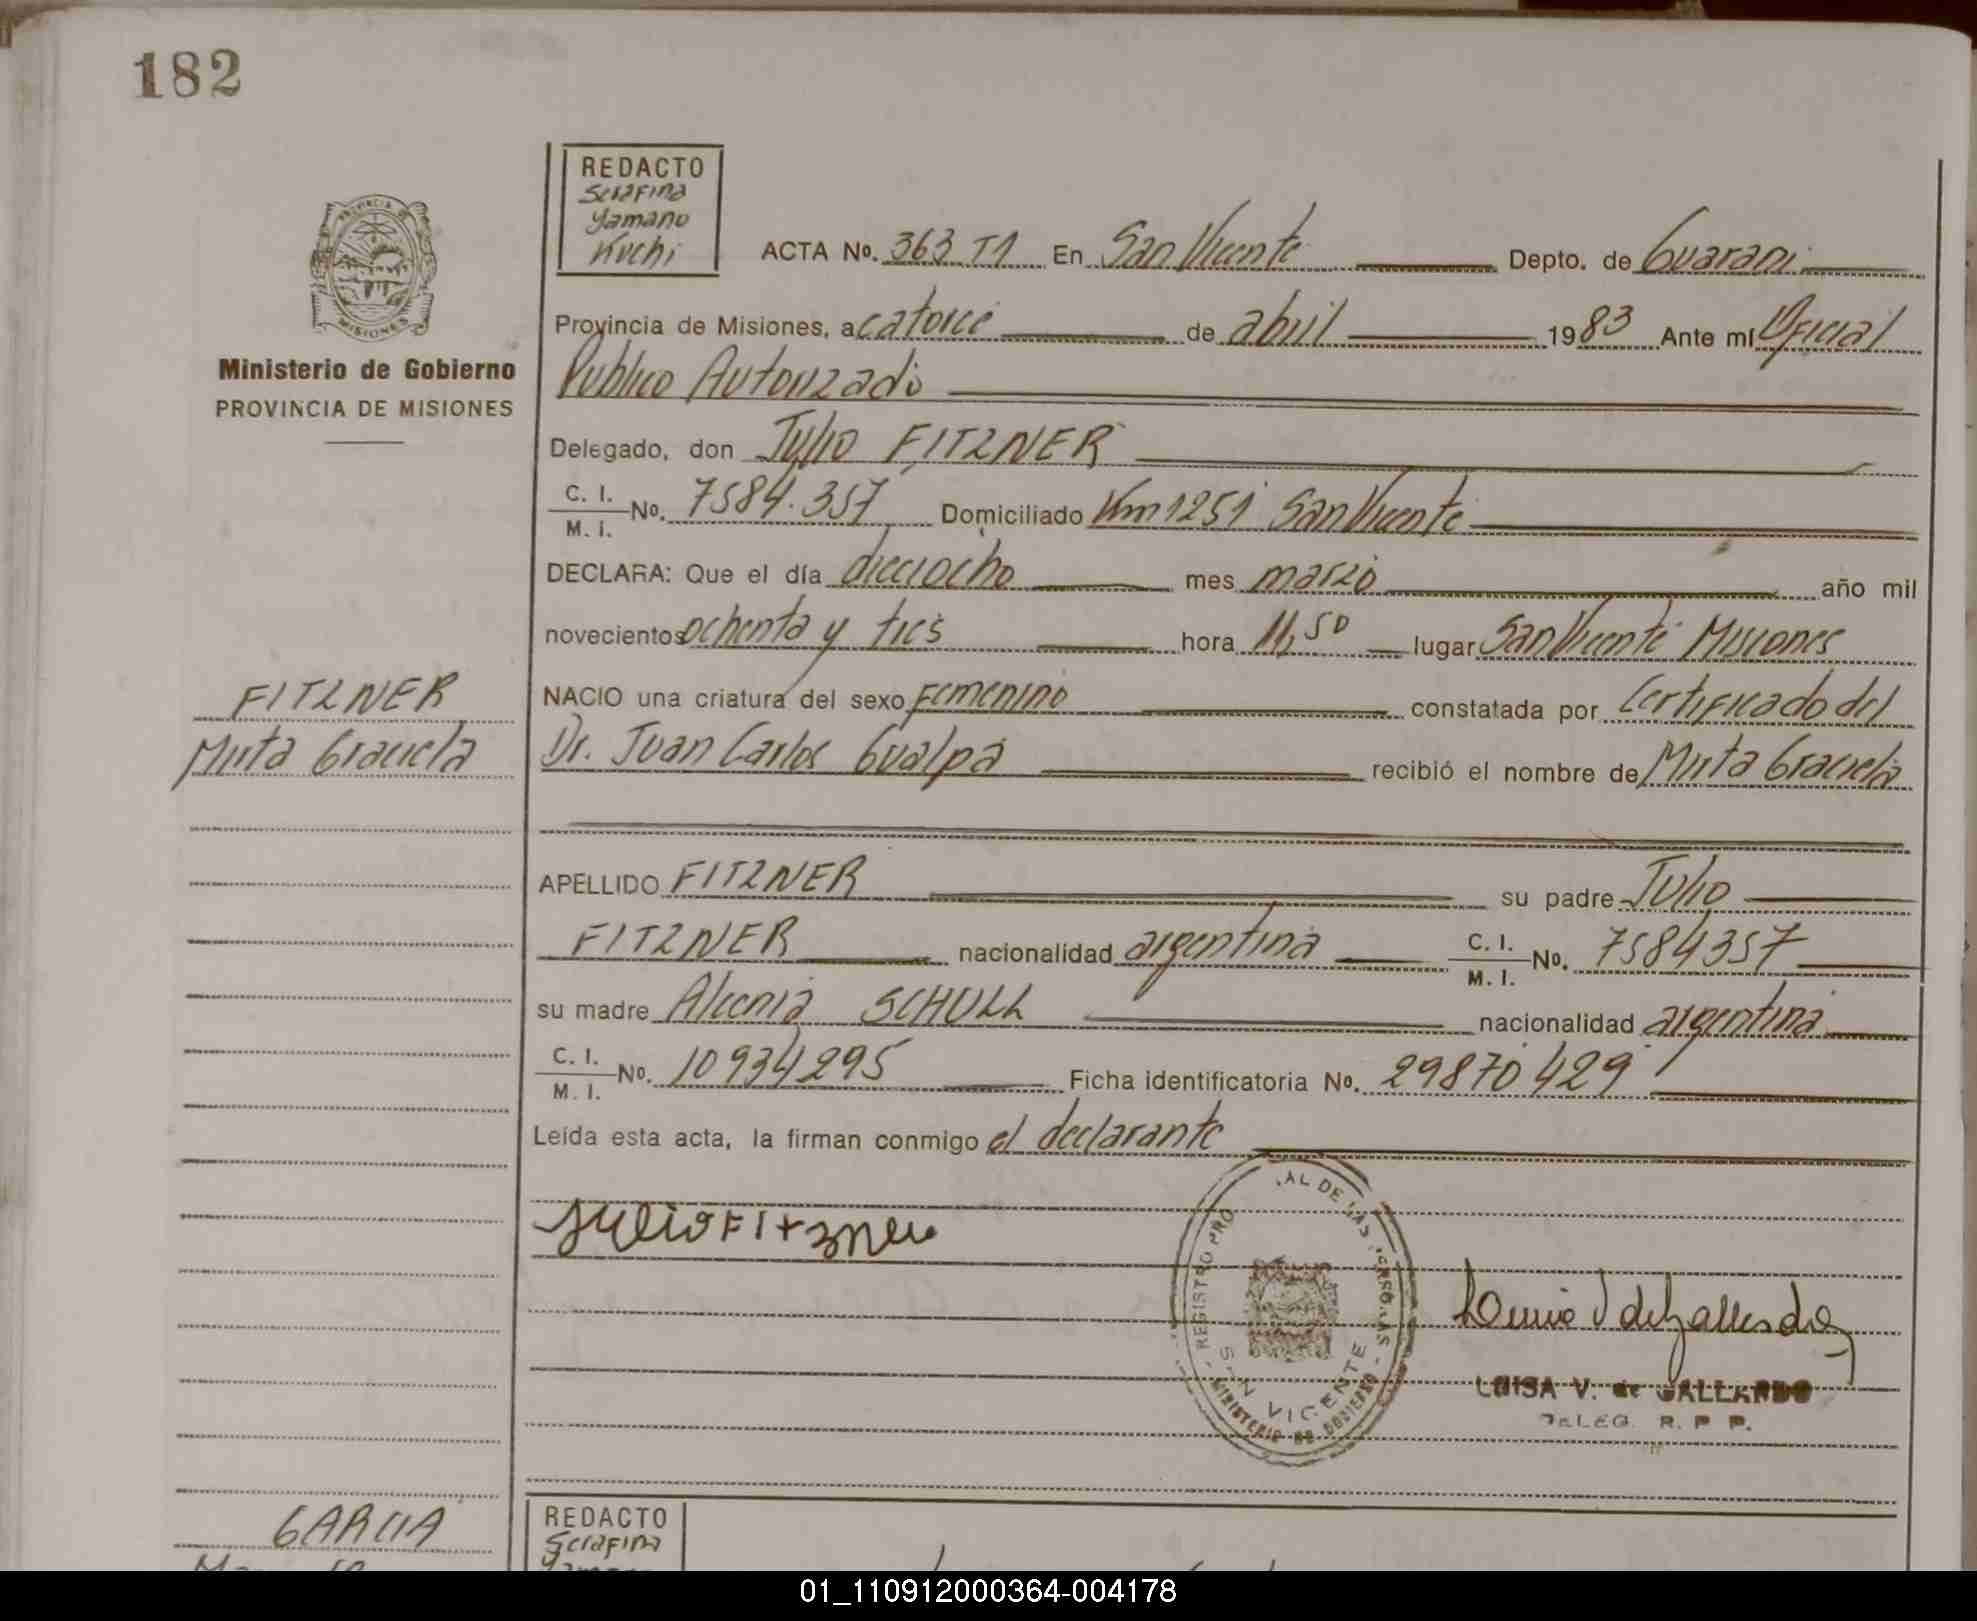 182
REDACTO
Serafina
Yamano
Kuchi
PROVINCIA DE
MISIONES
Ministerio de Gobierno
PROVINCIA DE MISIONES
ACTA No. 363 T1 En San Vicente Depto. de Guarani
Provincia de Misiones, a catorce de abril 1983 Ante mí Oficial
Publico Autorizado
Delegado, don Julio FITZNER
C. I. / M. I. No. 7584.357 Domiciliado Km 1251 San Vicente
DECLARA: Que el día dieciocho mes marzo año mil
novecientos ochenta y tres hora 11,50 lugar San Vicente Misiones
FITZNER
Mirta Graciela
NACIO una criatura del sexo Femenino constatada por Certificado del
Dr. Juan Carlos Gualpa recibió el nombre de Mirta Graciela
APELLIDO FITZNER su padre Julio
FITZNER nacionalidad argentina C. I. / M. I. No. 7584357
su madre Alcenia SCHULL nacionalidad argentina
C. I. / M. I. No. 10934295 Ficha identificatoria No. 29870429
Leída esta acta, la firman conmigo el declarante
Julio Fitzner
REGISTRO PRO AL DE LAS PERSONAS
SAN VICENTE
MINISTERIO DE GOBIERNO
LUISA V. de GALLARDO
DELEG. R. P. P.
GARCIA
REDACTO
Serafina
01_110912000364-004178